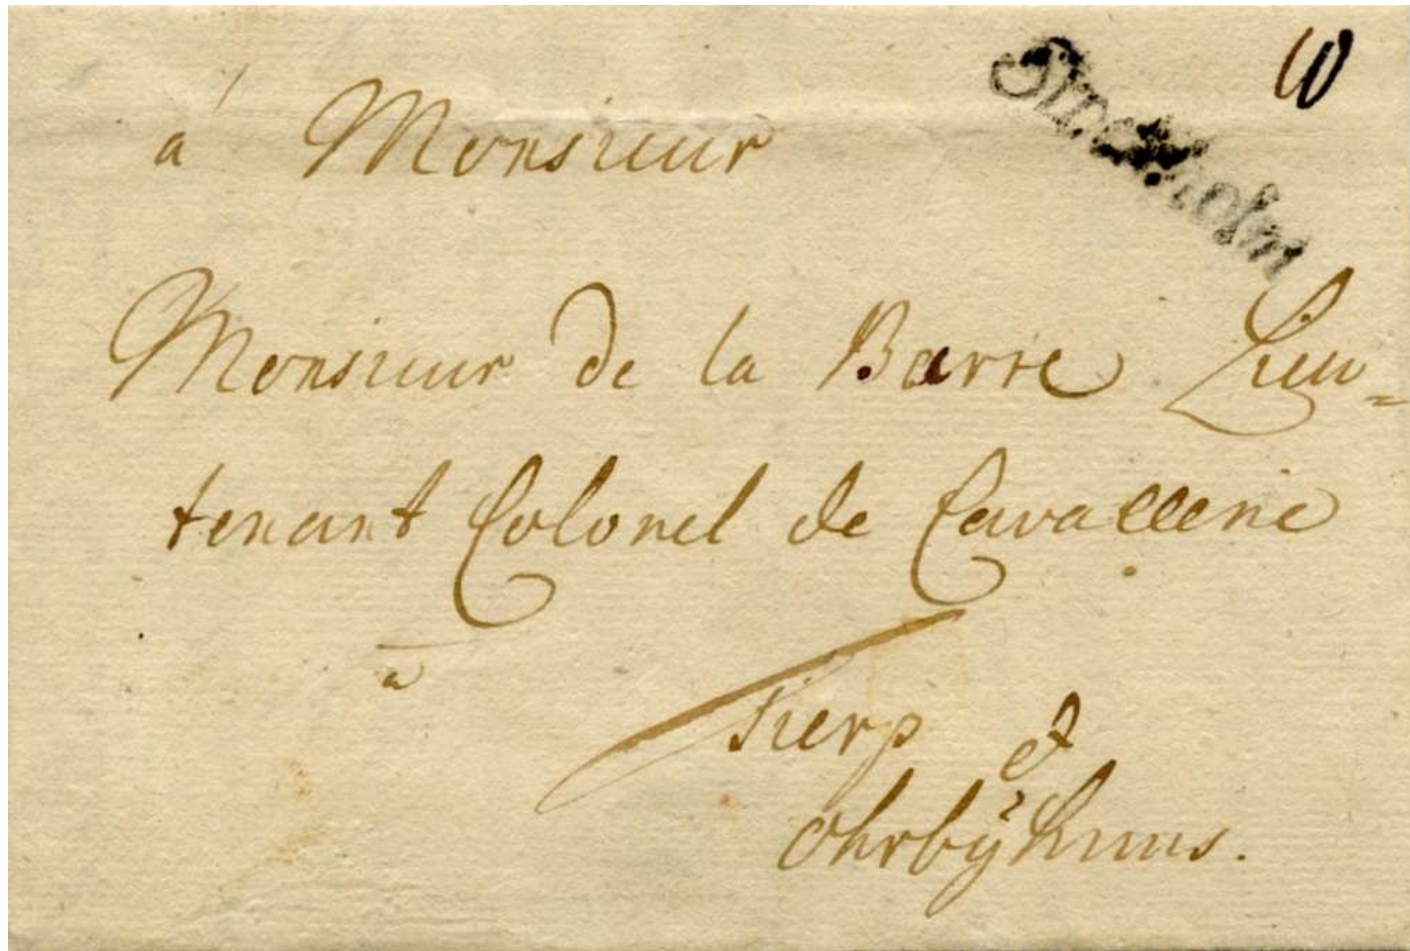 10
Stockholm
á Monsieur
Monsieur de la Barre Lieu=
tenant Colonel de Cavallerie
à
Tierp et
Ohrbÿhuus.